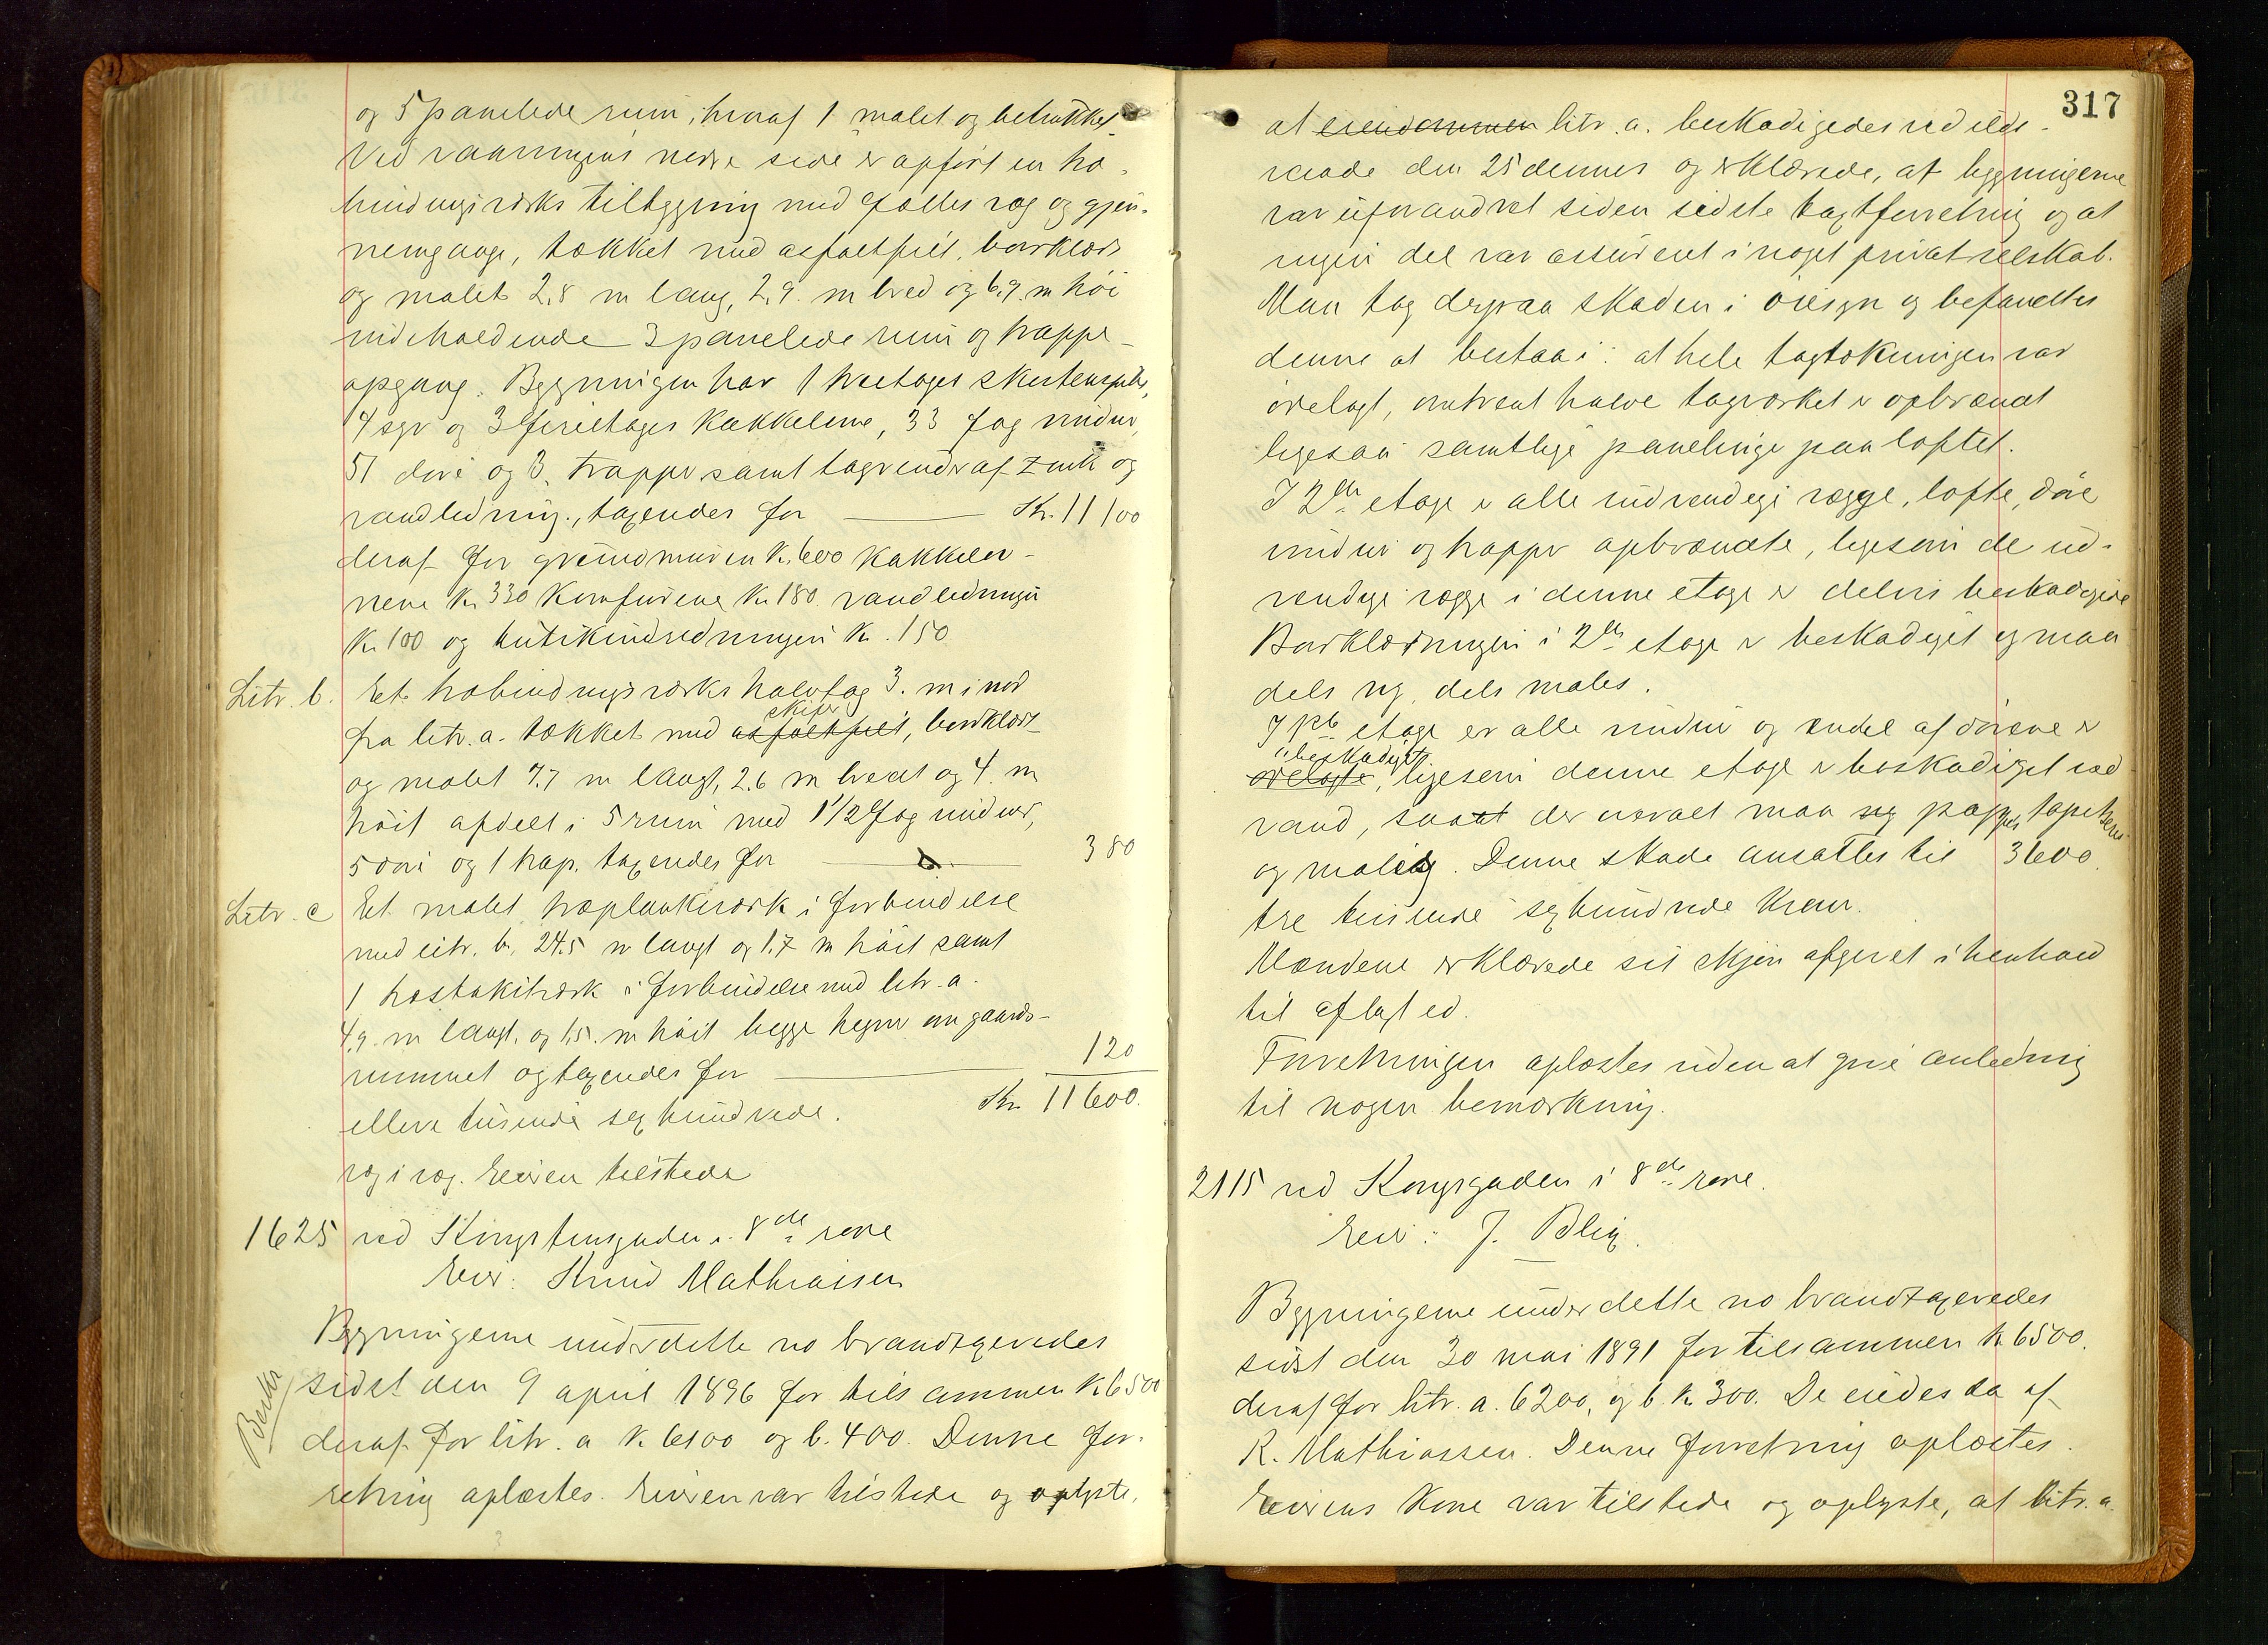 og 5 panelede rum, hvoraf 1 malet og betrukket
Ved vaaningens nedre side er opført en træ-
bindingsværks tilbygning med fælles væg og gjen-
nemgang, tækket med asfaltfilt, bordklædt
og malet 2,8 m lang, 2,9 m bred og 6,9 m høi
indeholdende 3 panelede rum og trappe-
opgang. Bygningen har 1 treetages skorstenspibe,
4 og 3 fireetages kakkelovne, 33 fag vinduer,
51 døre og 3 trapper samt tagrender af zink og
vandledning, taxeredes for Kr. 11 100
deraf for grundmuren Kr. 600 kakkelov-
nene Kr. 330 komfurene Kr. 180 vandledningen
Kr. 100 og butikindredningen Kr. 150
Litr. b. Et træbindingsværks halvtag 3. m i nord
skifer
fra litr. a. tækket med asfaltfilt, bordklædt
og malet 7.7 m langt, 2.6 m bredt og 4 m
høit afdelt i 5 rum med 1 1/2 fag vinduer,
5 døre og 1 trap. taxeredes for 380
Litr. c Et malet træplankeværk i forbindelse
med litr. b. 24.5 m langt og 1.7 m høit samt
1 træstakitværk i forbindelse med litr. a.
4,9 m langt, og 1,5 m høit begge hegner om gaards-
rummet og taxeredes for 120
elleve tusinde sexhundrede. Kr. 11 600.
væg i væg. Eieren tilstede
1625 ved Kongstensgaden i 8de rode
Eier: Knud Mathiassen
Bygningerne under dette no brandtaxeredes
sidst den 9 april 1896 for tilsammen Kr. 6500
deraf for litr. a Kr. 6100 og b. 400. Denne for-
retning oplæstes. Eieren var tilstede og oplyste,
317
at eiendommen litr. a. beskadigedes ved ilds-
vaade den 25 dennes og erklærede, at bygningerne
var uforandret siden sidste taxtforretning og at
ingen del var assureret i noget privat selskab.
Man tog derpaa skaden i øiesyn og befandtes
denne at bestaa i: at hele tagtækningen var
ødelagt, omtrent halve tagværket er opbrændt
ligesaa samtlige panelinge paa loftet.
I 2den etage er alle indvendige vægge, lofte, døre
vinduer og trapper opbrændte, ligesom de ud-
vendige vægge i denne etage er delvis beskadigede
Bordklædningen i 2den etage er beskadiget og maa
dels ny, dels males.
I 1ste etage er alle vinduer og endel af dørene er
beskadiget
ødelagte, ligesom denne etage er beskadiget ved
vand, saa at der overalt maa ny pappes, tapetseres
og males. Denne skade ansattes til 3600
tre tusinde sexhundrede kroner.
Mændene erklærede sit skjøn afgivet i henhold
til aflagt ed.
Forretningen oplæstes uden at give anledning
til nogen bemærkning.
2115 ved Kongsgaden i 8de rode.
Eier: J. Blix.
Bygningerne under dette no brandtaxeredes
sidst den 30 mai 1891 for tilsammen Kr. 6500.
deraf for litr. a. 6200, og b. Kr. 300. De eiedes da af
K. Mathiassen. Denne forretning oplæstes.
Eierens kone var tilstede og oplyste, at litr. a.